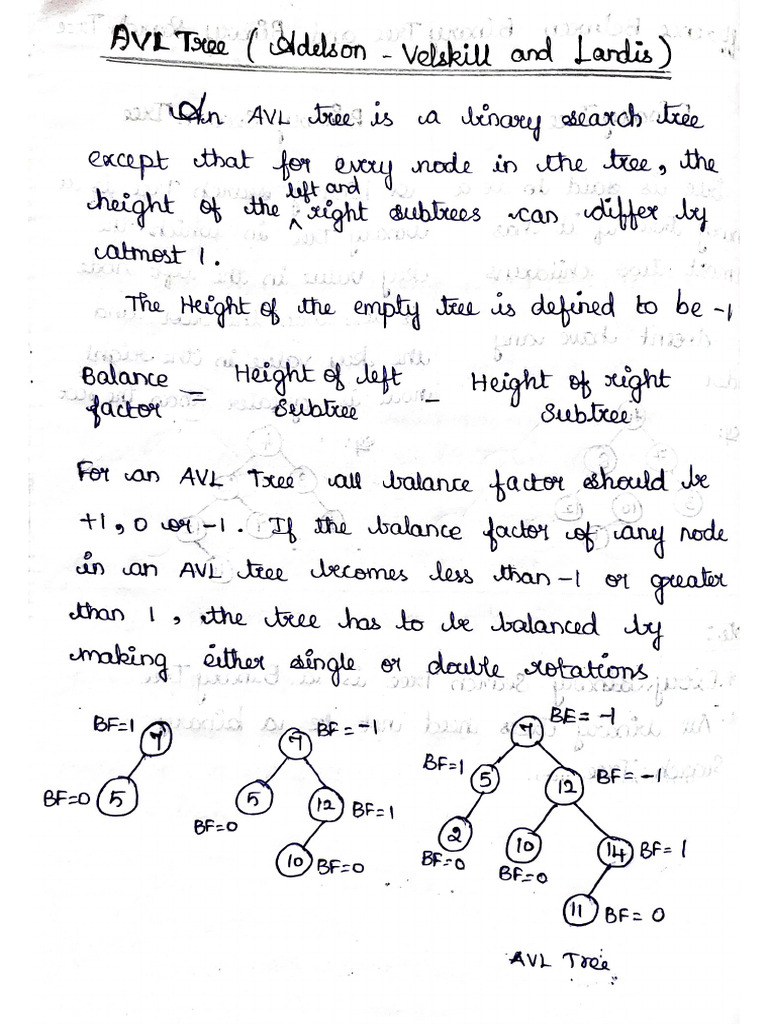 AVL Tree (Adelson - Velskill and Landis)
An AVL tree is a binary search tree
except that for every node in the tree, the
height of the left and right subtrees can differ by
atmost 1.
The Height of the empty tree is defined to be -1
Balance factor = Height of left Subtree - Height of right Subtree
For an AVL Tree all balance factor should be
+1, 0 or -1. If the balance factor of any node
in an AVL tree becomes less than -1 or greater
than 1, the tree has to be balanced by
making either single or double rotations
BF=1 7
BF=0 5
7 BF=-1
5 BF=0
12 BF=1
10 BF=0
7 BF=-1
BF=1 5
12 BF=-1
2 BF=0
10 BF=0
14 BF=1
11 BF=0
AVL Tree